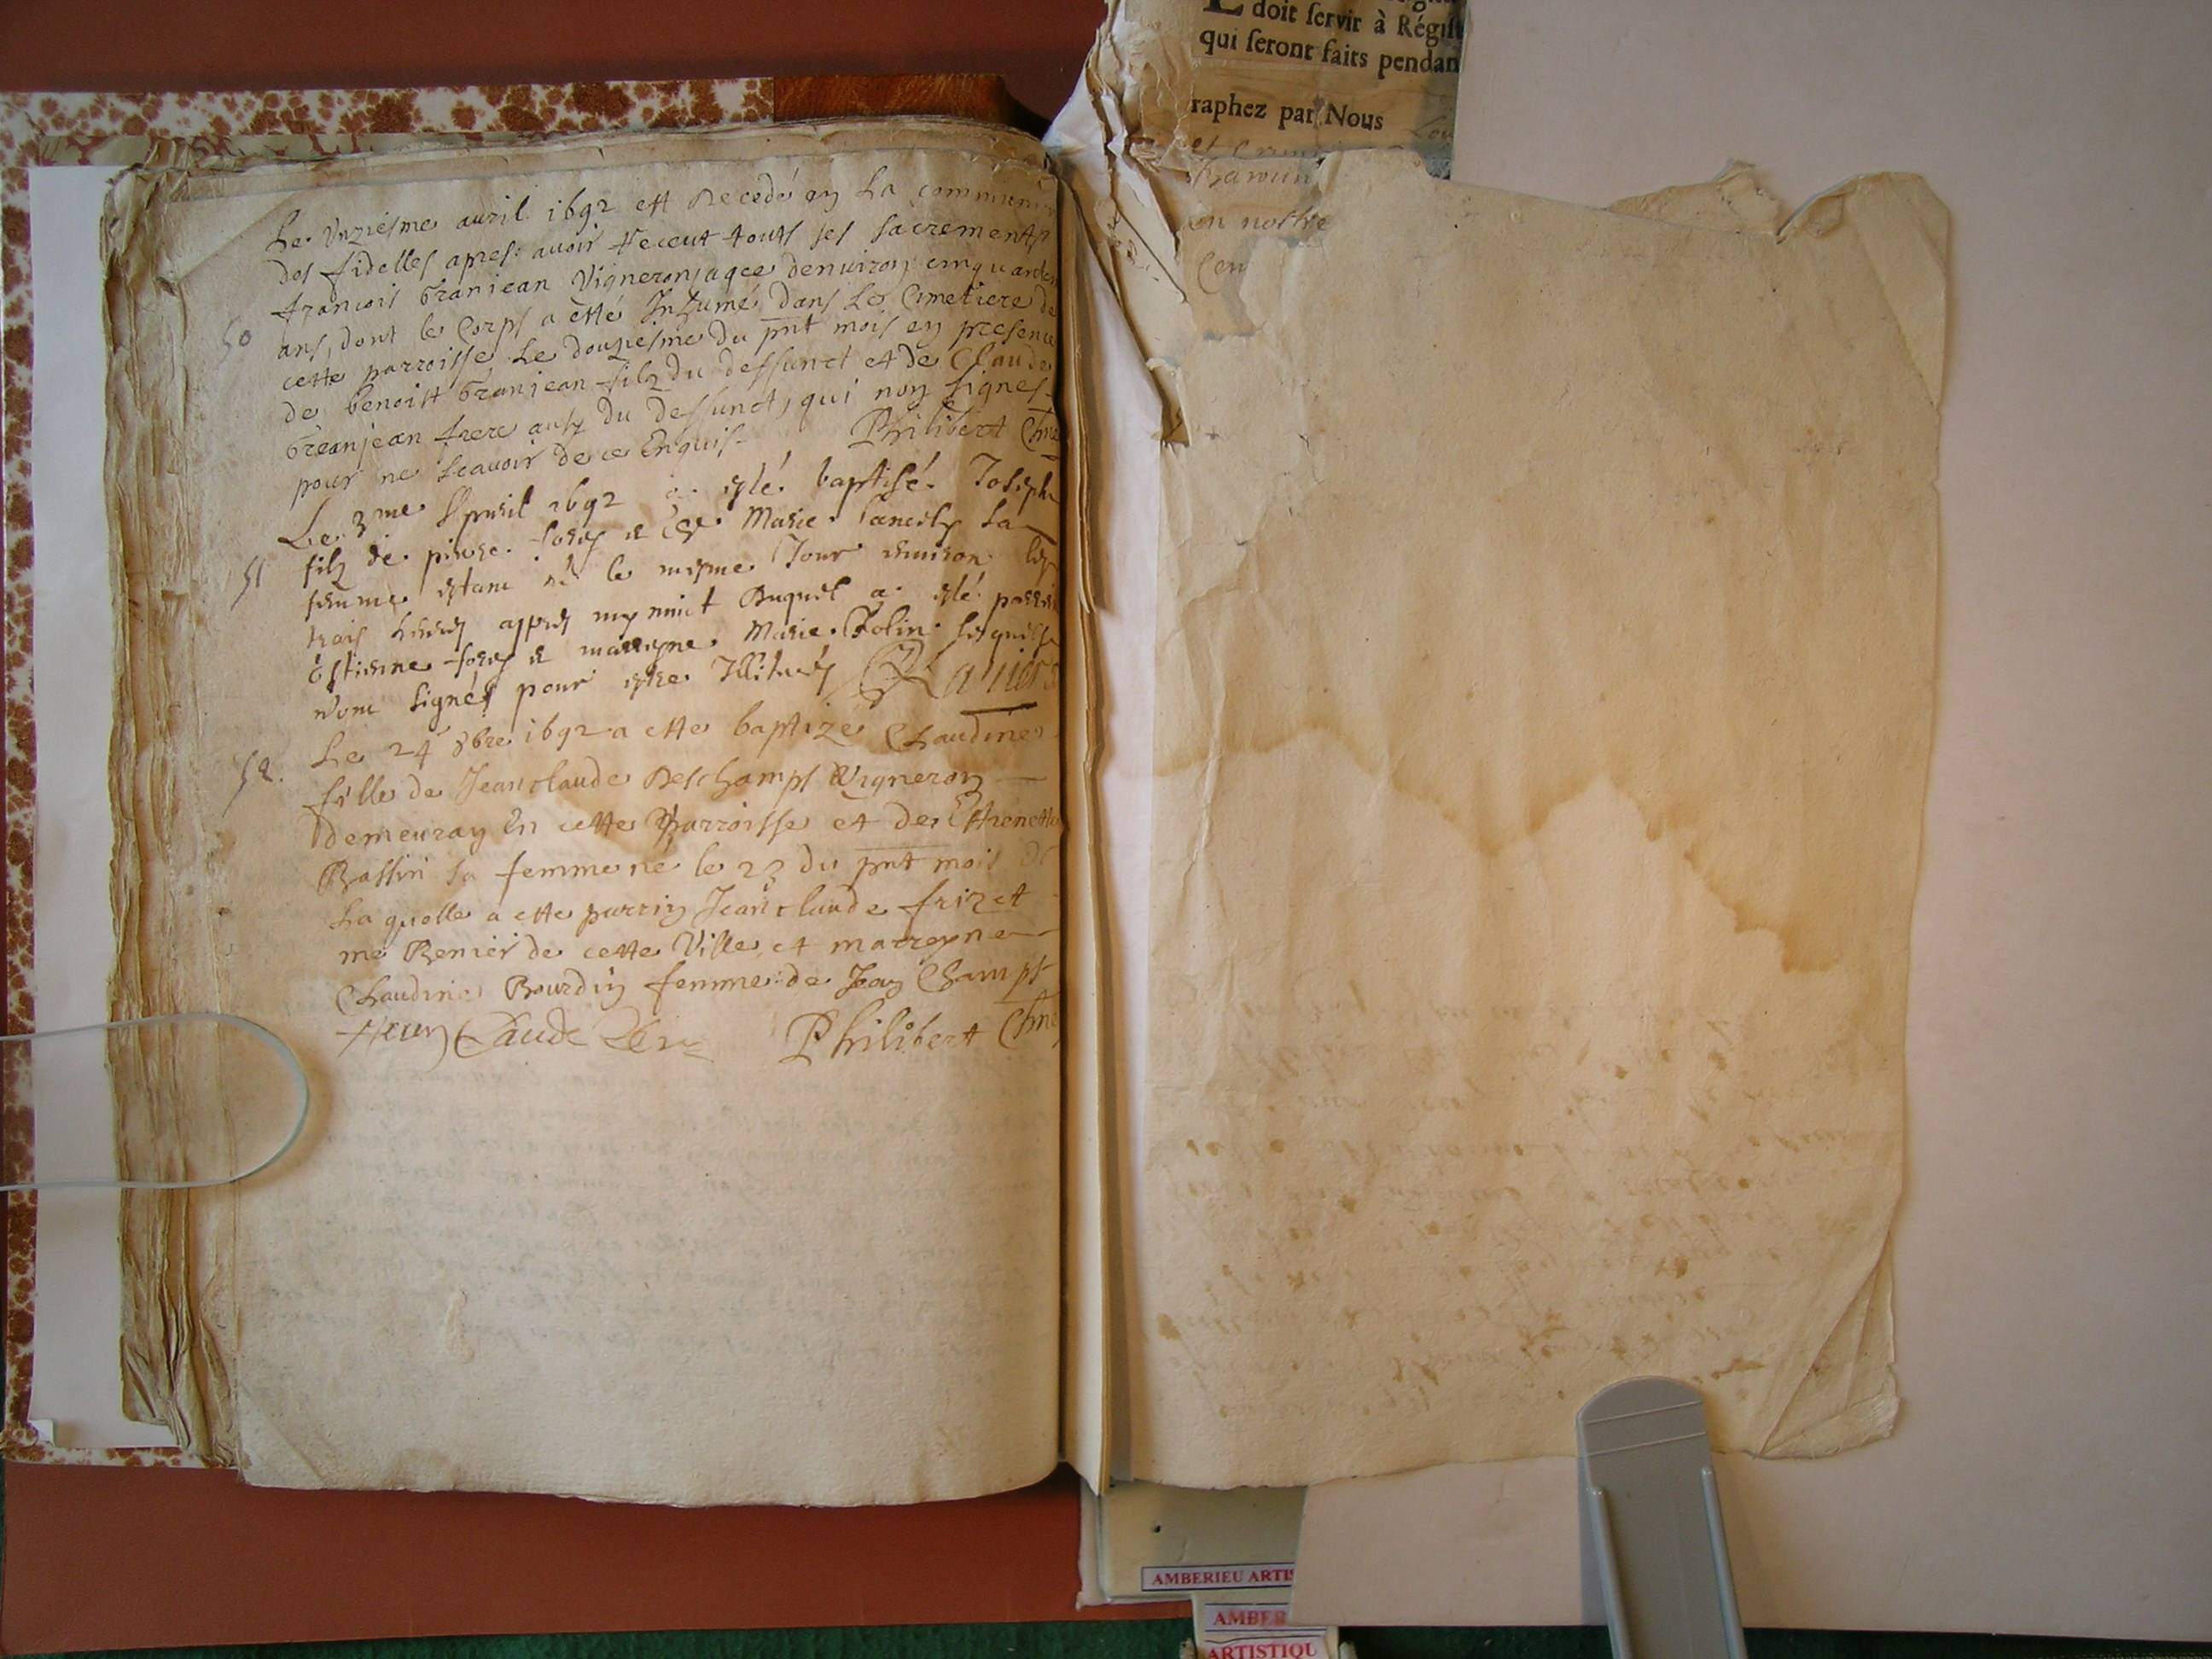 Le Vnziesme auril 1692 est decedé en La commun
des fidelles apres auoir receut touts ses sacrements
francois Granjean Vigneron agee denuiron cinquante
50 ans, dont le Corps a esté Inhumé dans Le Cimetiere de
cette parroisse Le douziesme du pnt mois en presence
de benoist Granjean filz du deffunct et de Claude
Greanjean frere ausy du deffunct, qui non signes
pour ne scauoir de ce Enquis Philibert
Le 3me Apuril 1692 a esté baptisé Joseph
51 filz de pierre et Marie sa
femme estant né le mesme Jour enuiron les
trois heures appres mynuict Duquel a esté parrin
Estienne et marreyne Marie lesquels
n'ont signés pour estre
52. Le 24 8bre 1692 a este baptizé Claudine
fille de Jeanclaude Deschamps Vigneron
demeuran En cette Parroisse et de
Bassin sa femme né le 23 du pnt mois de
Laquelle a este parrin Jean claude frizet
me de cette Ville et marreyne
Claudine Bourdin femme de Jean Champs
Claude Philibert
doit servir à Régist
qui seront faits pendan
raphez par Nous
en nostre
AMBERIEU ARTIS
AMBER
ARTISTIQU